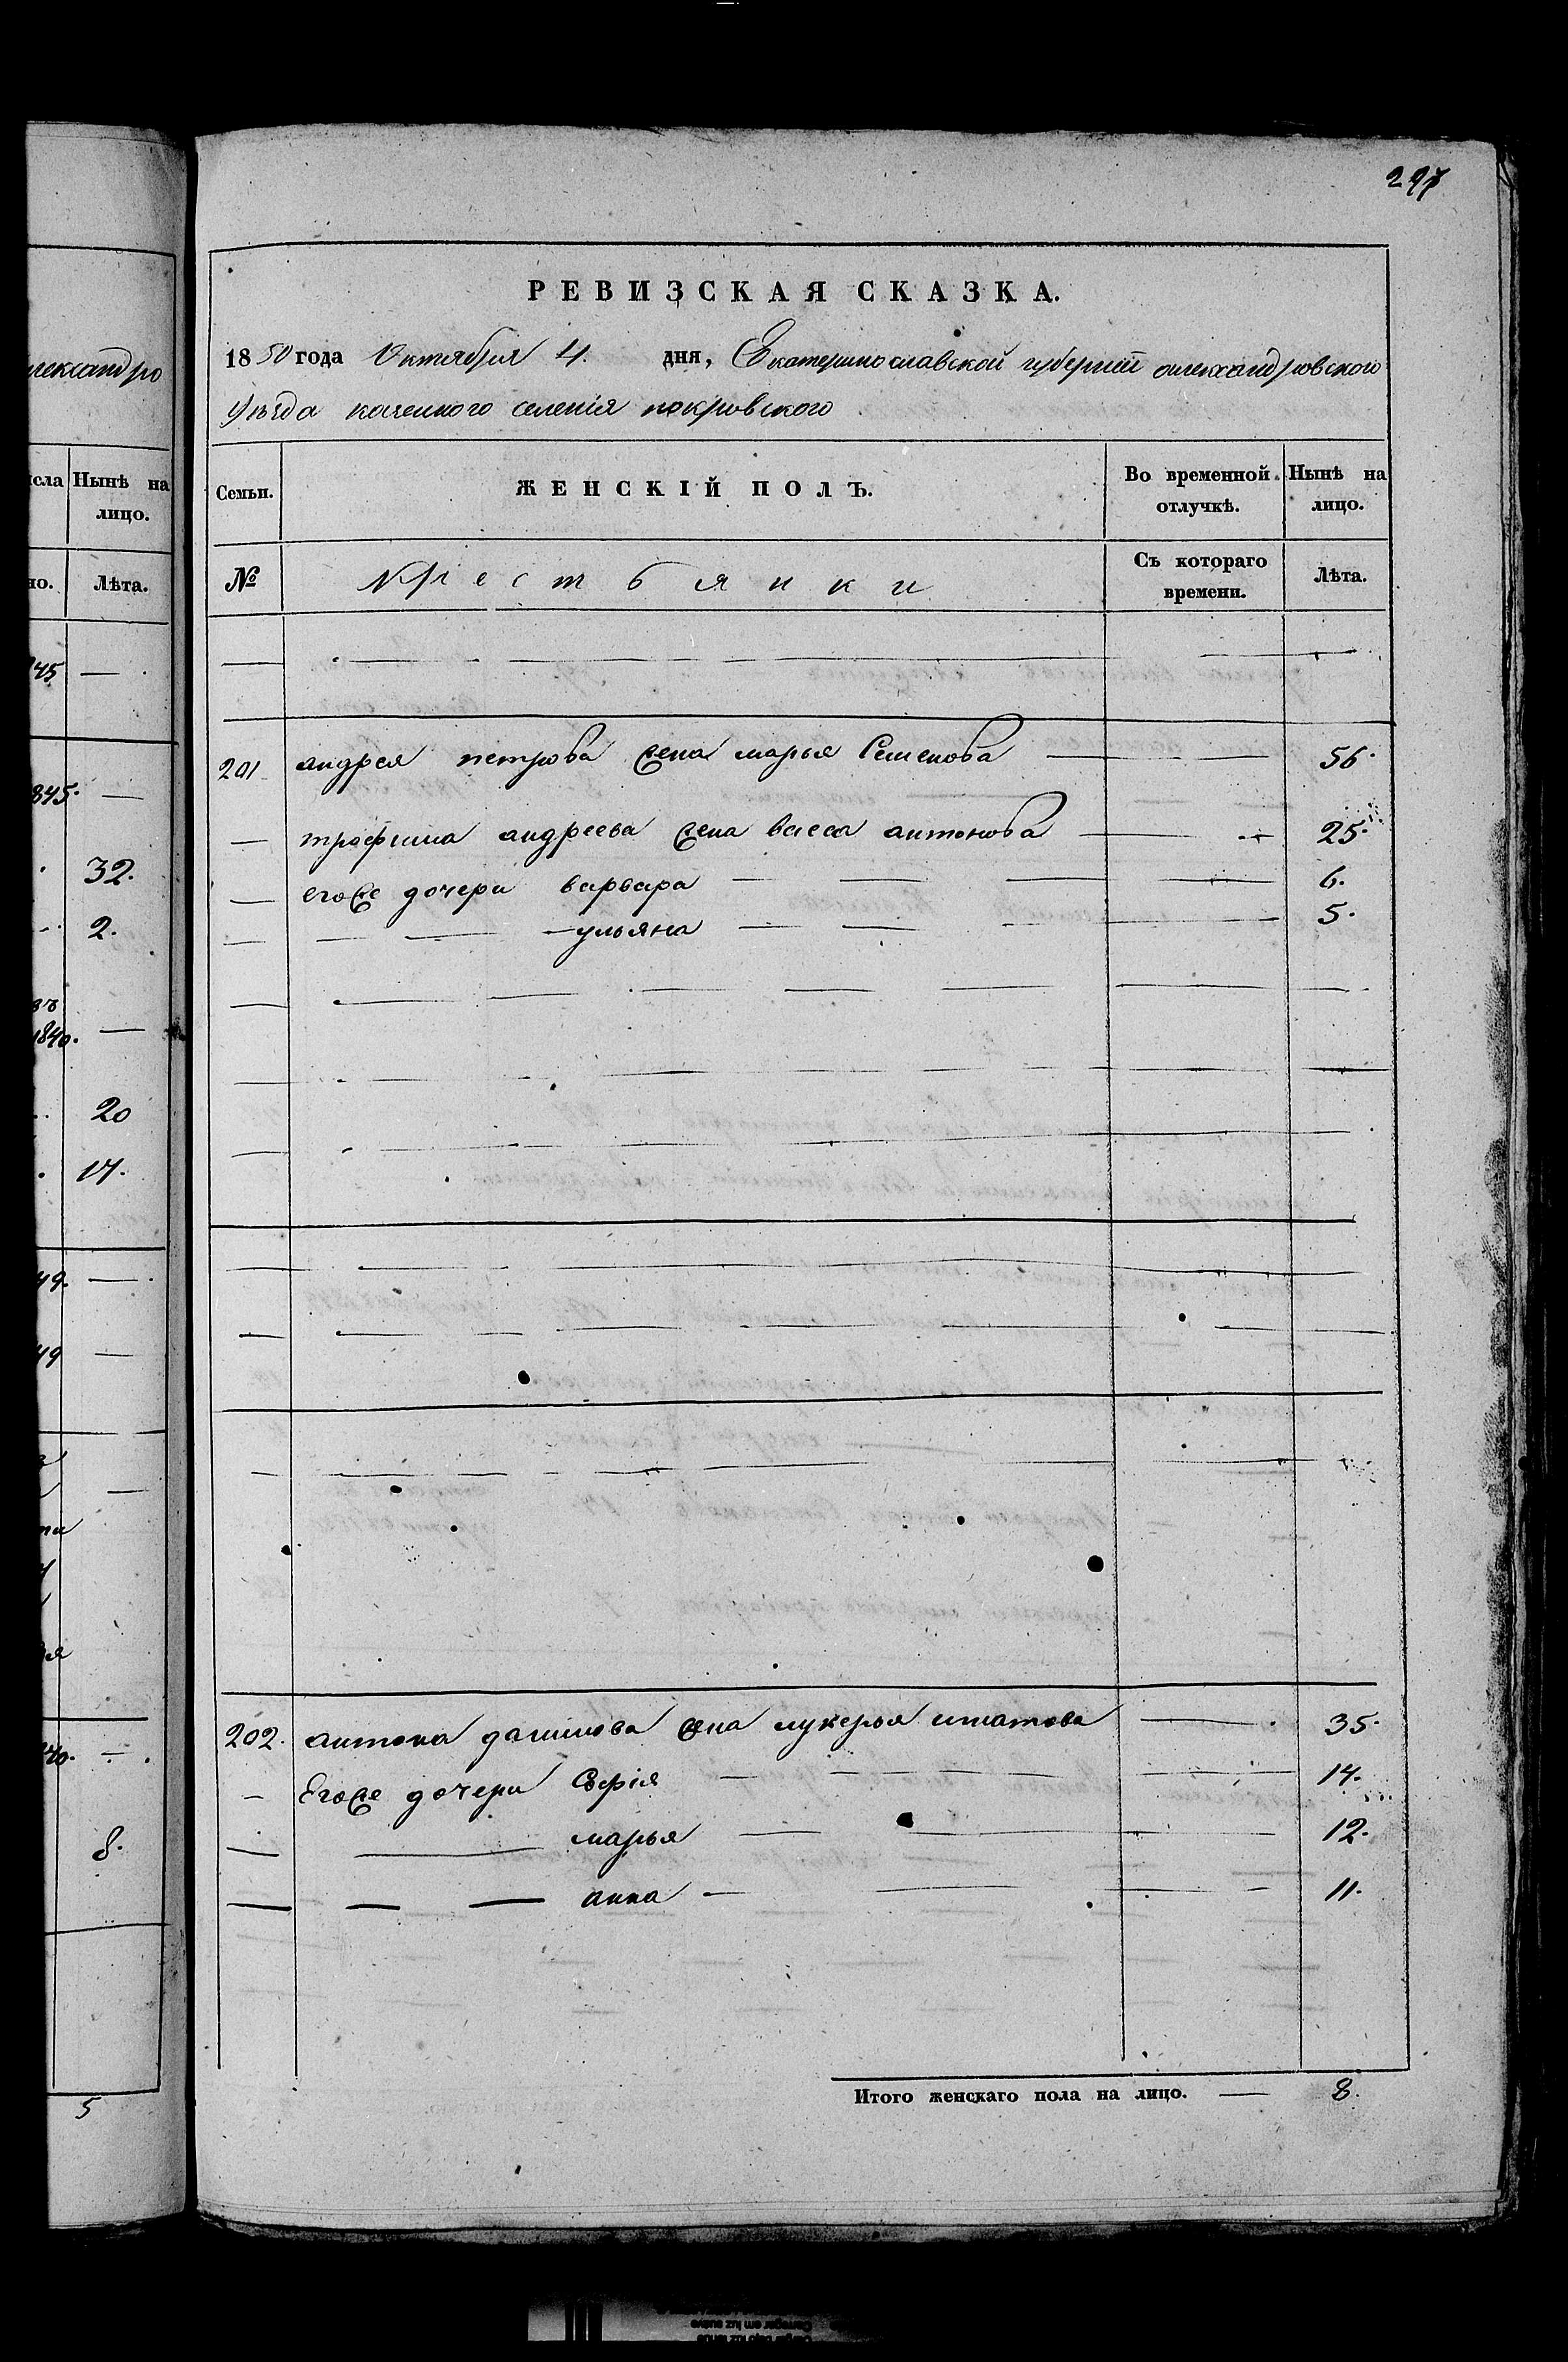 297
лександро
сла
Нынѣ на
лицо.
но.
Лѣта.
45 —
845. —
32.
2.
1840. —
20
17.
49. —
49 —
40. —
8.
5
РЕВИЗСКАЯ СКАЗКА.
1850 года Октября 4. дня, Екатеринославской губернiи александровского
Уѣзда казенного селенiя покровского
Семьи.
ЖЕНСКІЙ ПОЛЪ.
Во временной
отлучкѣ.
Нынѣ на
лицо.
№
Крестьянки
Съ котораго
времени.
Лѣта.
201 андрея петрова жена марья Семенова — 56.
— трофима андреева жена васса антонова — 25.
— егоже дочери варвара — 6.
— ульяна — 5.
202. антона данилова жена лукерья игнатова — 35.
— Егоже дочери Софiя — 14.
— марья — 12.
— анна — 11.
Итого женскаго пола на лицо. — 8.